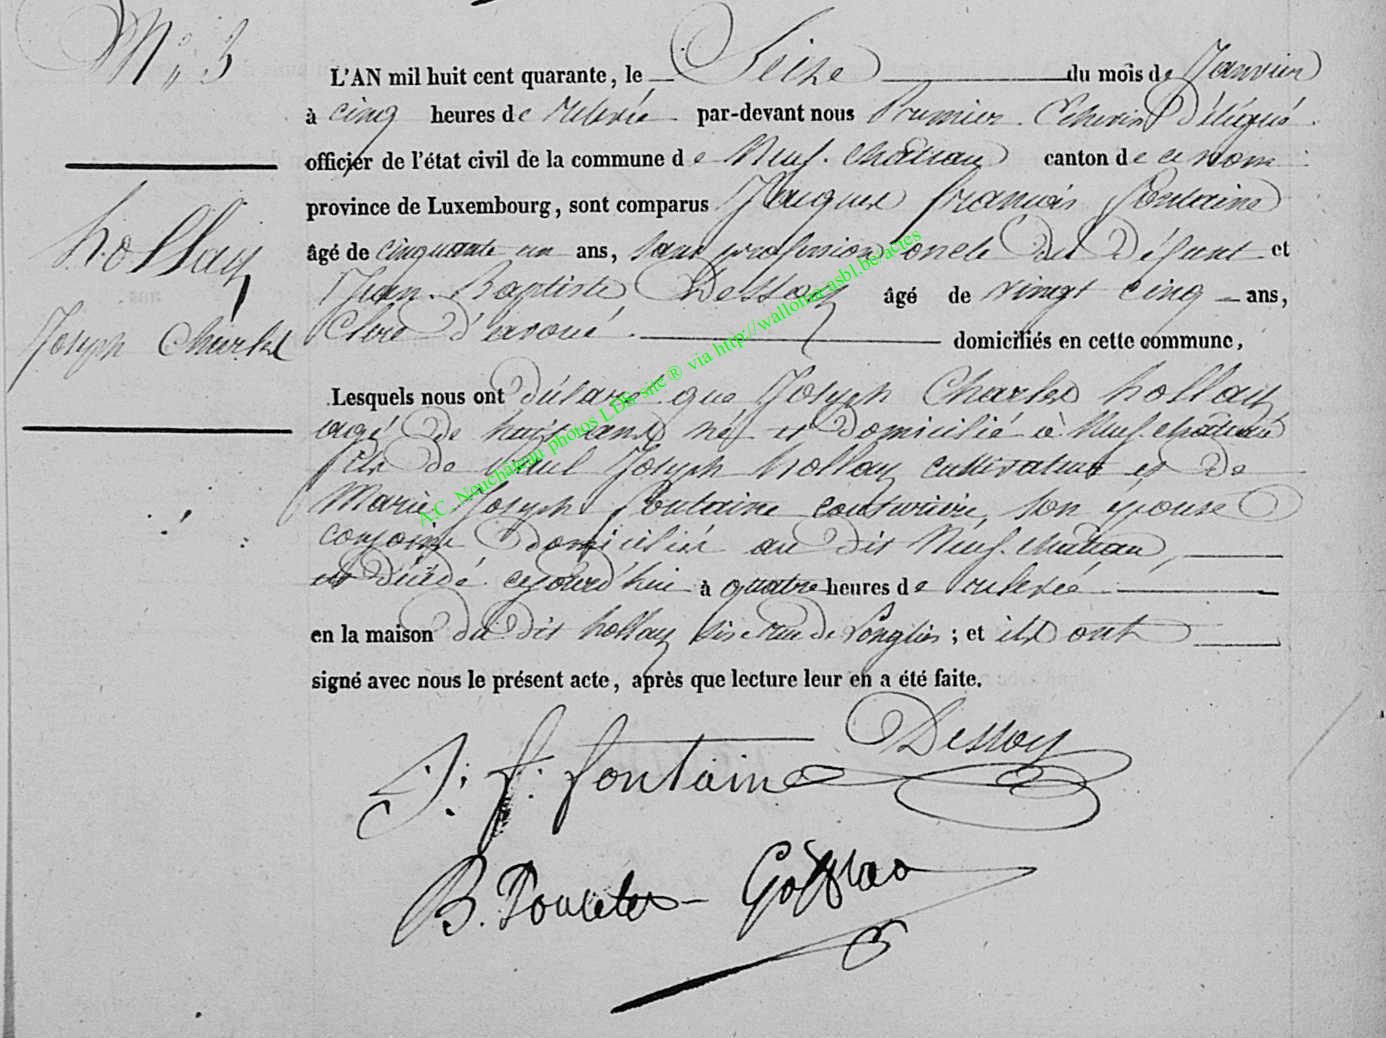 N° 3
hollay
Joseph Charles
L'AN mil huit cent quarante, le Seize du mois de Janvier
à cinq heures de relevée par-devant nous Premier Echevin Délégué
officier de l'état civil de la commune de Neuf-château canton de ce nom
province de Luxembourg, sont comparus Jacques françois fontaine
âgé de cinquante un ans, sans profession oncle du Défunt et
Jean-Baptiste Dessoy âgé de vingt cinq ans,
Clerc d'avoué domiciliés en cette commune,
Lesquels nous ont déclaré que Joseph Charles hollay
agé de huit ans né et Domicilié à Neuf-château
fils de Joseph hollay cultivateur et de
Marie Joseph fontaine couturière, son épouse
conjoints domiciliés au dit Neuf-château,
est Décédé cejourd'hui à quatre heures de relevée
en la maison du dit hollay sise rue de Longlier ; et ils ont
signé avec nous le présent acte, après que lecture leur en a été faite.
J. f. fontaine Dessoy
B. Poncelet
A.C. Neuchâteau photos LDS site ® via http://wallonia-asbl.be/actes